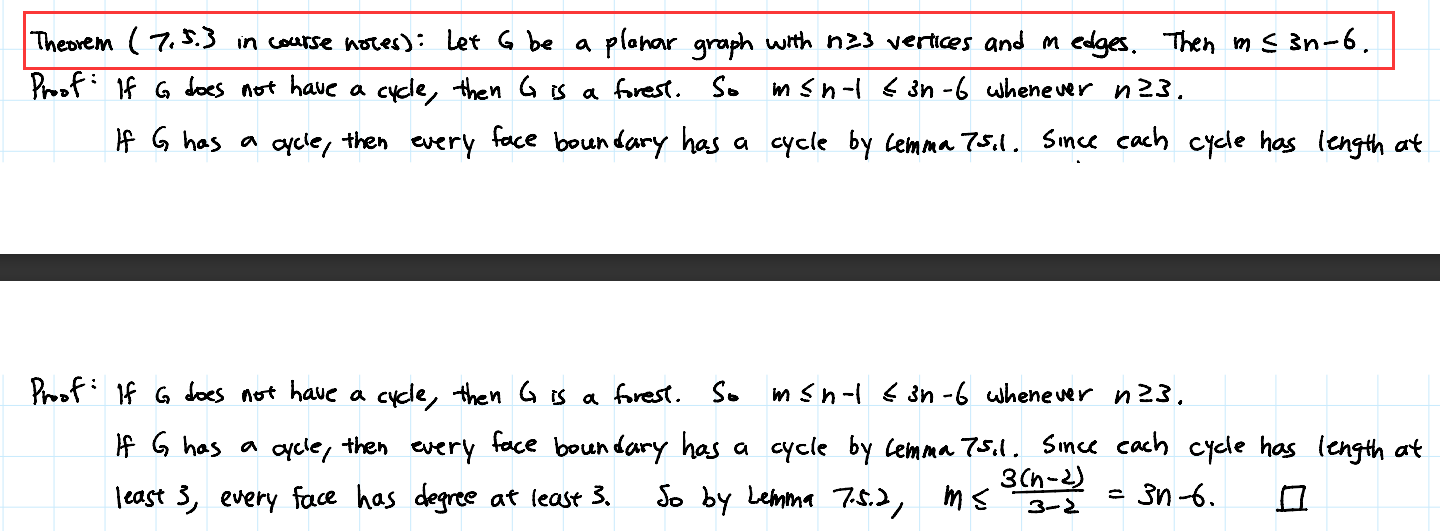 Theorem (7.5.3 in course notes): Let G be a planar graph with n≥3 vertices and m edges. Then m ≤ 3n-6.
Proof: If G does not have a cycle, then G is a forest. So m ≤ n-1 ≤ 3n-6 whenever n≥3.
If G has a cycle, then every face boundary has a cycle by Lemma 7.5.1. Since each cycle has length at
Proof: If G does not have a cycle, then G is a forest. So m ≤ n-1 ≤ 3n-6 whenever n≥3.
If G has a cycle, then every face boundary has a cycle by Lemma 7.5.1. Since each cycle has length at
least 3, every face has degree at least 3. So by Lemma 7.5.2, m ≤ 3(n-2)/3-2 = 3n-6. □